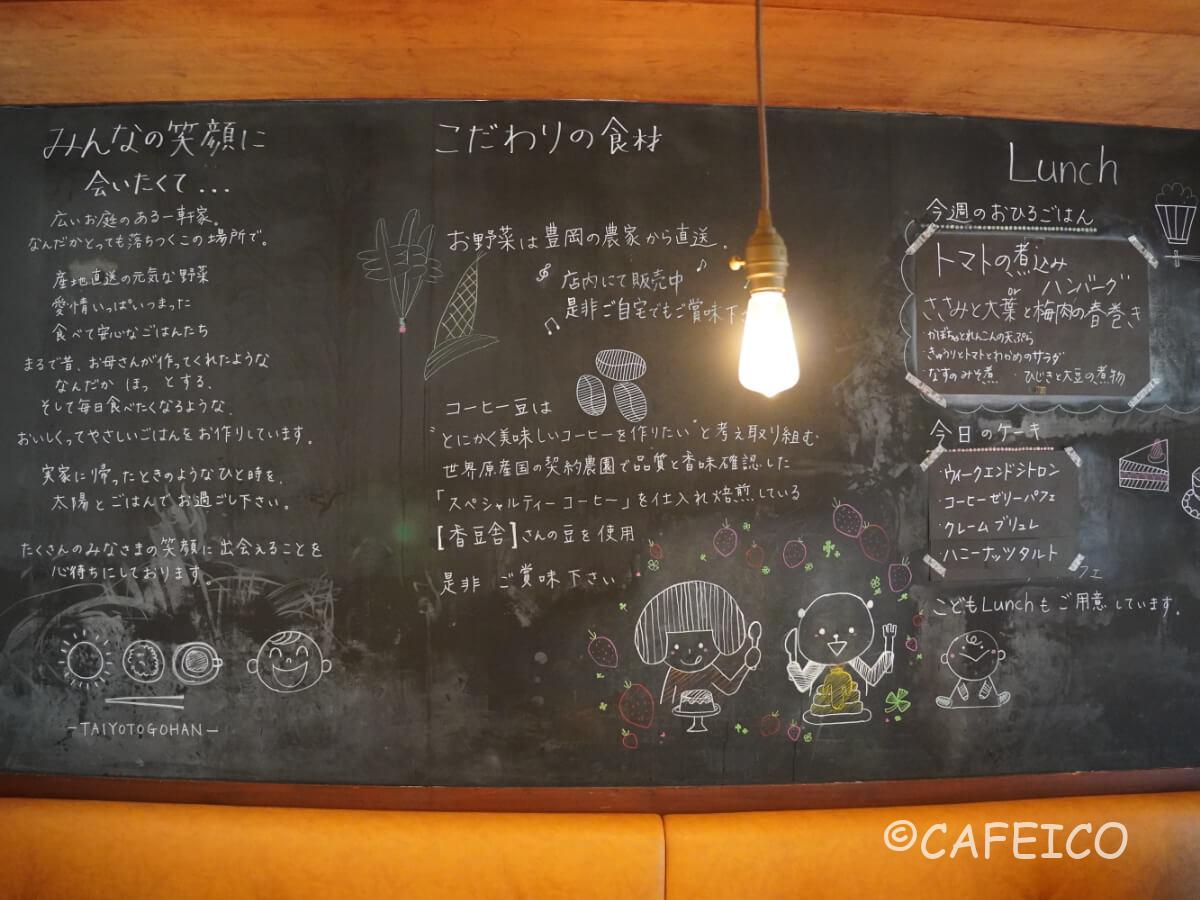 みんなの笑顔に
会いたくて...
広いお庭のある一軒家。
なんだかとっても落ちつくこの場所で。
産地直送の元気な野菜
愛情いっぱいつまった
食べて安心なごはんたち
まるで昔、お母さんが作ってくれたような
なんだか ほっ とする、
そして毎日食べたくなるような、
おいしくってやさしいごはんをお作りしています。
実家に帰ったときのようなひと時を、
太陽とごはんでお過ごし下さい。
たくさんのみなさまの笑顔に出会えることを
心待ちにしております。
-TAIYOTOGOHAN-
こだわりの食材
お野菜は豊岡の農家から直送。
店内にて販売中
是非ご自宅でもご賞味下
コーヒー豆は
"とにかく美味しいコーヒーを作りたい"と考え取り組む
世界原産国の契約農園で品質と香味確認した
「スペシャルティーコーヒー」を仕入れ焙煎している
[香豆舎]さんの豆を使用
是非 ご賞味下さい
Lunch
今週のおひるごはん
トマトの煮込み
or ハンバーグ
ささみと大葉と梅肉の春巻き
・かぼちゃとれんこんの天ぷら
・きゅうりとトマトとわかめのサラダ
・なすのみそ煮 ・ひじきと大豆の煮物
今日のケーキ
・ウィークエンドシトロン
・コーヒーゼリーパフェ
・クレームブリュレ
・ハニーナッツタルト
フェ
こどもLunchもご用意しています。
©CAFEICO